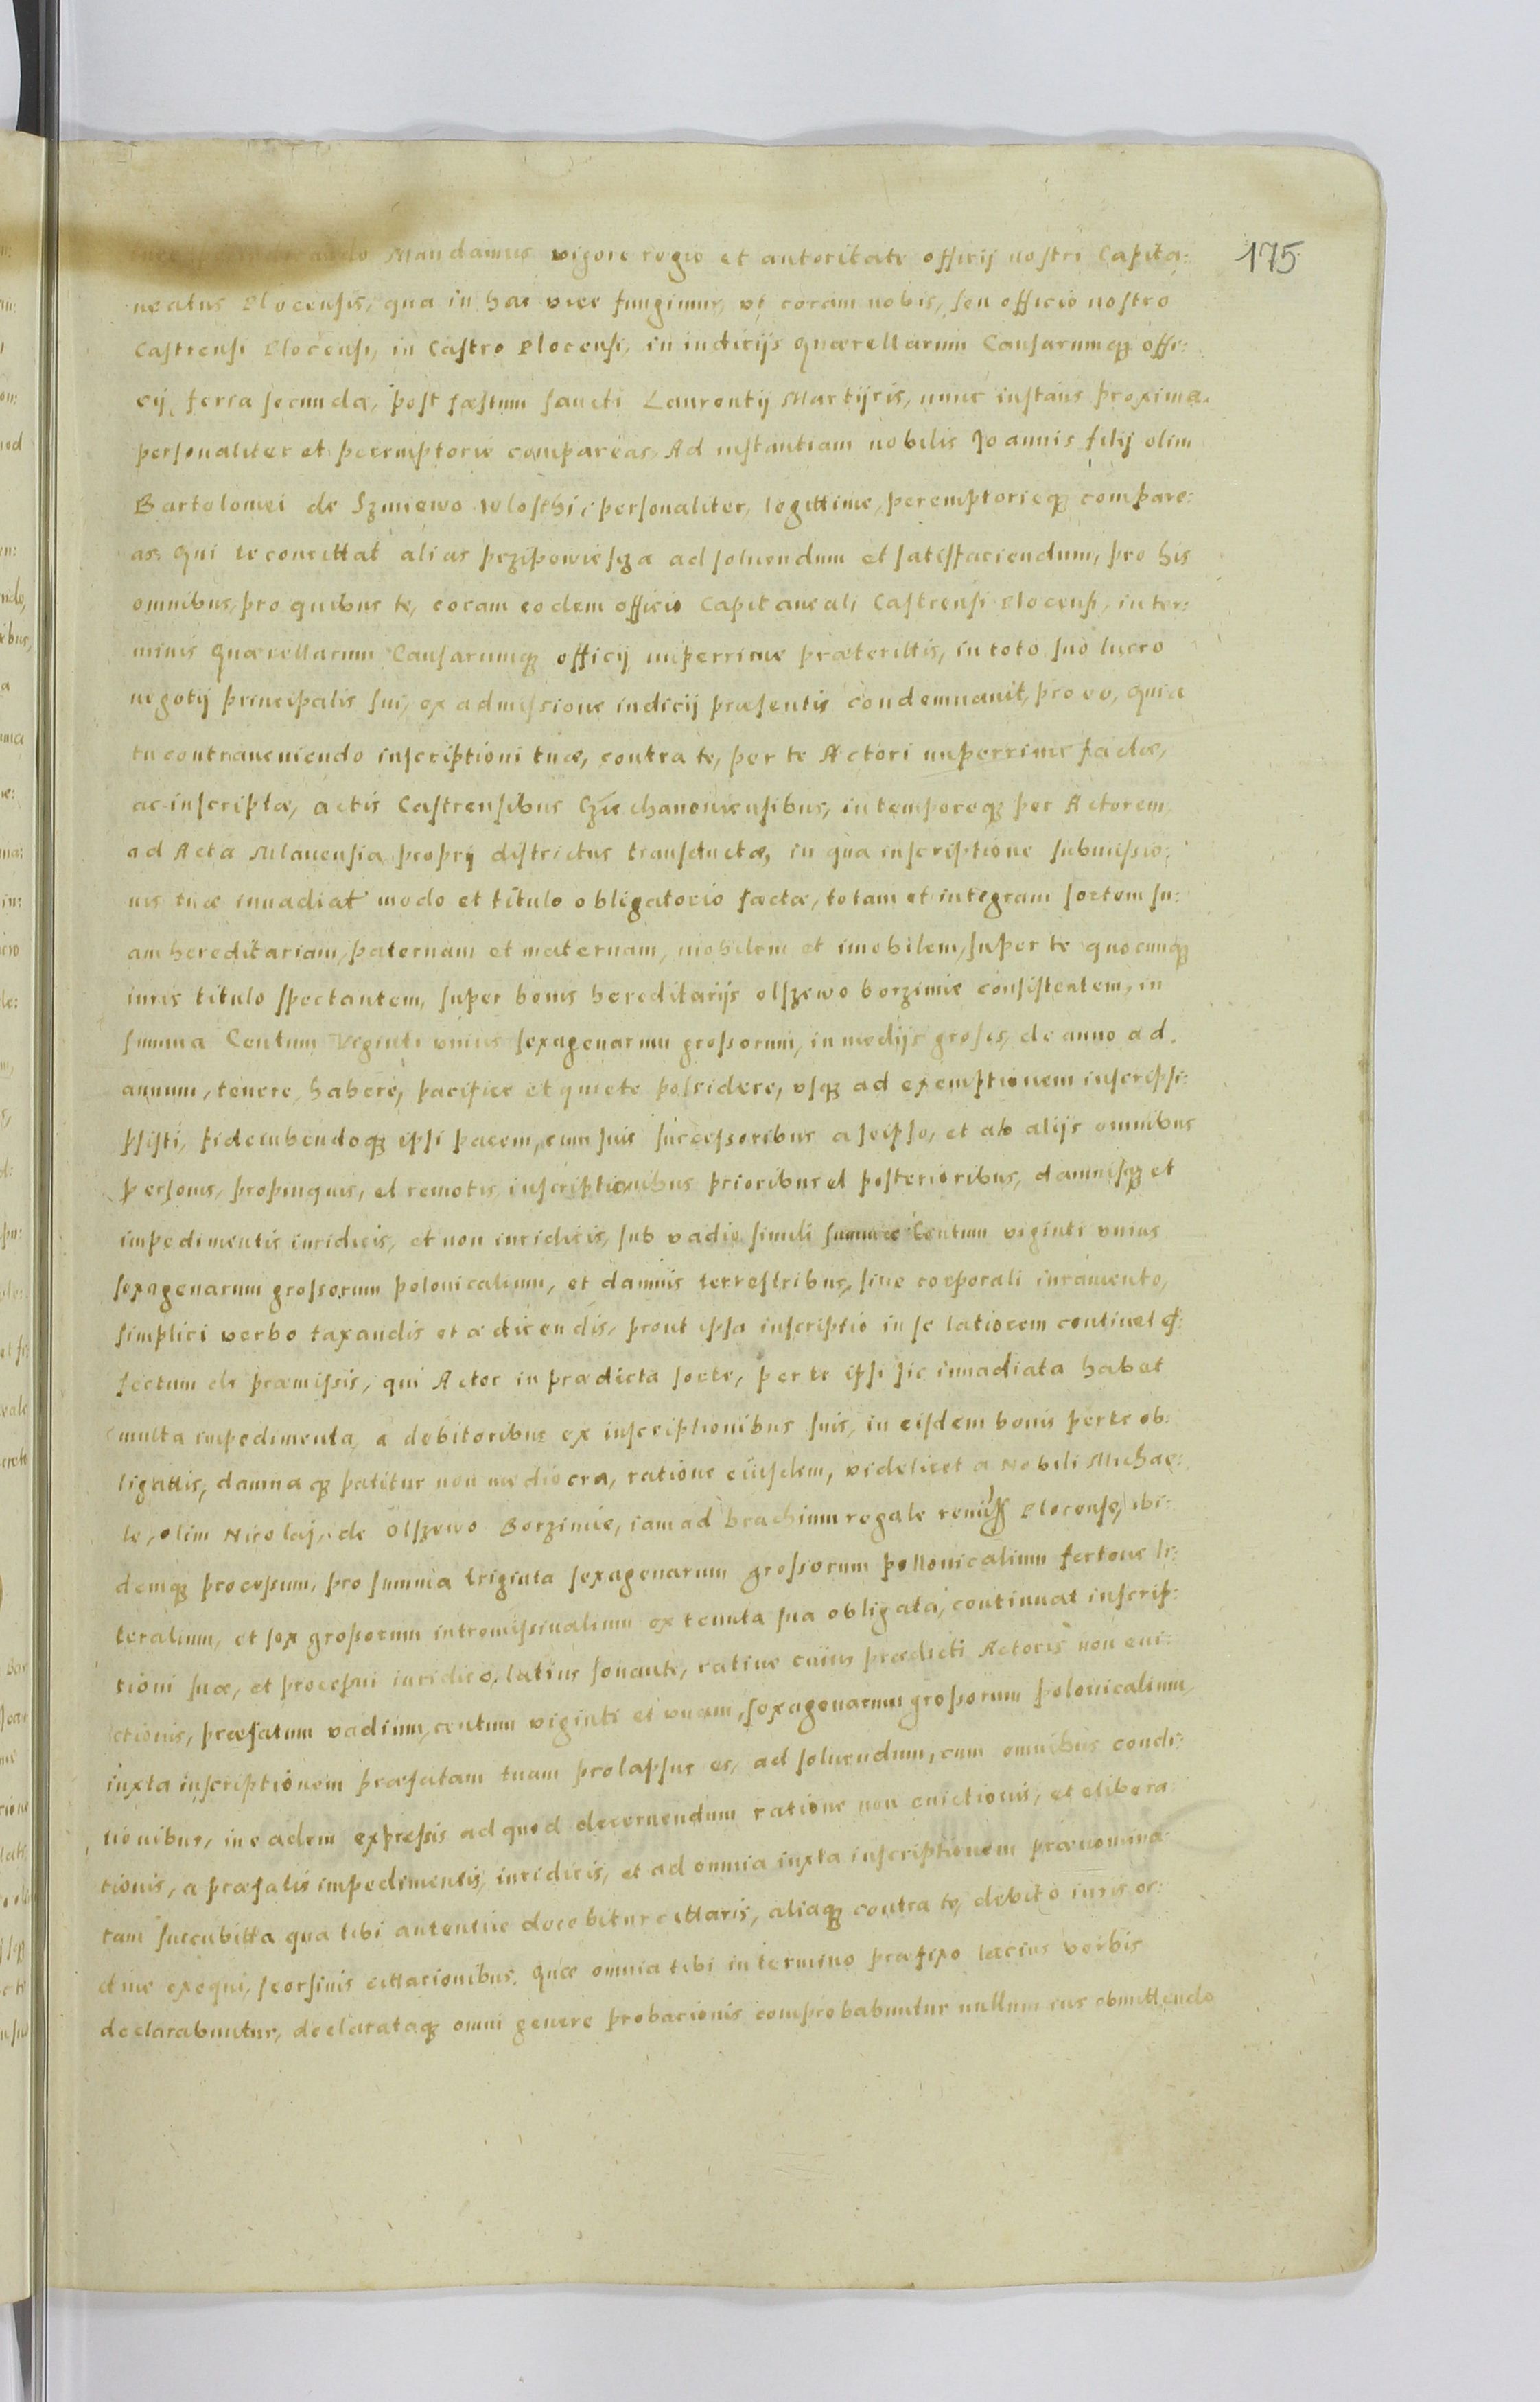 Mandamus vigore regio et autoritate officij nostri Capita: 175
neatus Plocensis, qua in hac vice fungimur, vt coram nobis, seu officio nostro
Castrensi Plocensi, in Castro Plocensi, in iudicijs Quærellarum Causarumq3 offi:
cij, feria secunda, post fæstum sancti Laurentij Martijris, nunc instans proxima.
personaliter et peremptorie compareas, Ad instantiam nobilis Joannis filij olim
Bartolomei de Szmiewo Wlosthi, personaliter, legittime, peremptorieq3 compare:
as, Qui te concittat alias przipowiesza ad soluendum et satisfaciendum, pro his
omnibus, pro quibus te, coram eodem officio Capitaneali Castrensi Plocensi, in ter:
minis Quærellarum Causarumq3 officij nuperrime præterittis, in toto suo lucro
negotij principalis sui, ex admissione iudicij præsentis condemnauit, pro eo, quia
tu contraueniendo inscriptioni tuæ, contra te, per te Actori nuperrime factæ,
ac inscriptæ, actis Castrensibus Cziechanouiensibus, in temporeq3 per Actorem,
ad Acta Mlauensia proprij districtus transductæ, in qua inscriptione submissio:
nis tuæ inuadiat modo et titulo obligatorio factæ, totam et integram sortem su:
am hereditariam, paternam et maternam, mobilem et imobilem, super te quocunq3
iuris titulo spectantem, super bonis hereditarijs olszewo borzimie consistentem, in
summa Centum Viginti vnius sexagenarum grossorum, in medijs grosis, de anno ad
annum, tenere, habere, pacifice et quiete possidere, vsq3 ad exemptionem inscripsi:
psisti, fideiubendoq3 ipsi pacem, cum suis successoribus a seipso, et ab alijs omnibus
personis, propinquis, et remotis, inscriptionibus prioribus et posterioribus, damnisq3 et
impedimentis iuridicis, et non iuridicis, sub vadio simili summæ Centum viginti vnius
sexagenarum grossorum polonicalium, et damnis terrestribus, sine corporali iuramento,
simplici verbo taxandis et ædicendis, prout ipsa inscriptio in se latiorem continet ef:
fectum de præmissis, qui Actor in prædicta sorte, per te ipsi sic inuadiata habet
multa impedimenta, a debitoribus ex inscriptionibus suis, in eisdem bonis per te ob:
ligattis, damnaq3 patitur non mediocra, ratione eiusdem, videlicet a Nobili Michae:
le, olim Nicolaj, de Olszewo Borzimie, iam ad brachium regale Plocense, ibi:
demq3 processum, pro summa triginta sexagenarum grossorum pollonicalium fertone li:
teralium, et sex grossorum intromissiualium ex tenuta sua obligata, continuat inscrip:
tioni suæ, et processui iuridico, latius sonante, ratine cuius prædicti Actoris non eui:
ctionis, præfatum vadium, centum viginti et vnam, sexagenarum grossorum polonicalium,
iuxta inscriptionem præfatam tuam prolapsus es, ad soluendum, cum omnibus condi:
tionibus, in eadem expressis ad quod decernendum ratione non euictionis, et elibera:
tionis, a præfatis impedimentis, iuridicis, et ad omnia iuxta inscriptionem prænomina:
tam succubitta qua tibi autentice docebitur cittaris, aliaq3 contra te, debito iuris or:
dine exequi, seorsiuis cittacionibus. Quæ omnia tibi in termino præfixo lacius verbis
declarabuntur, declarataq3 omni genere probacionis comprobabuntur nullum ius obmittendo